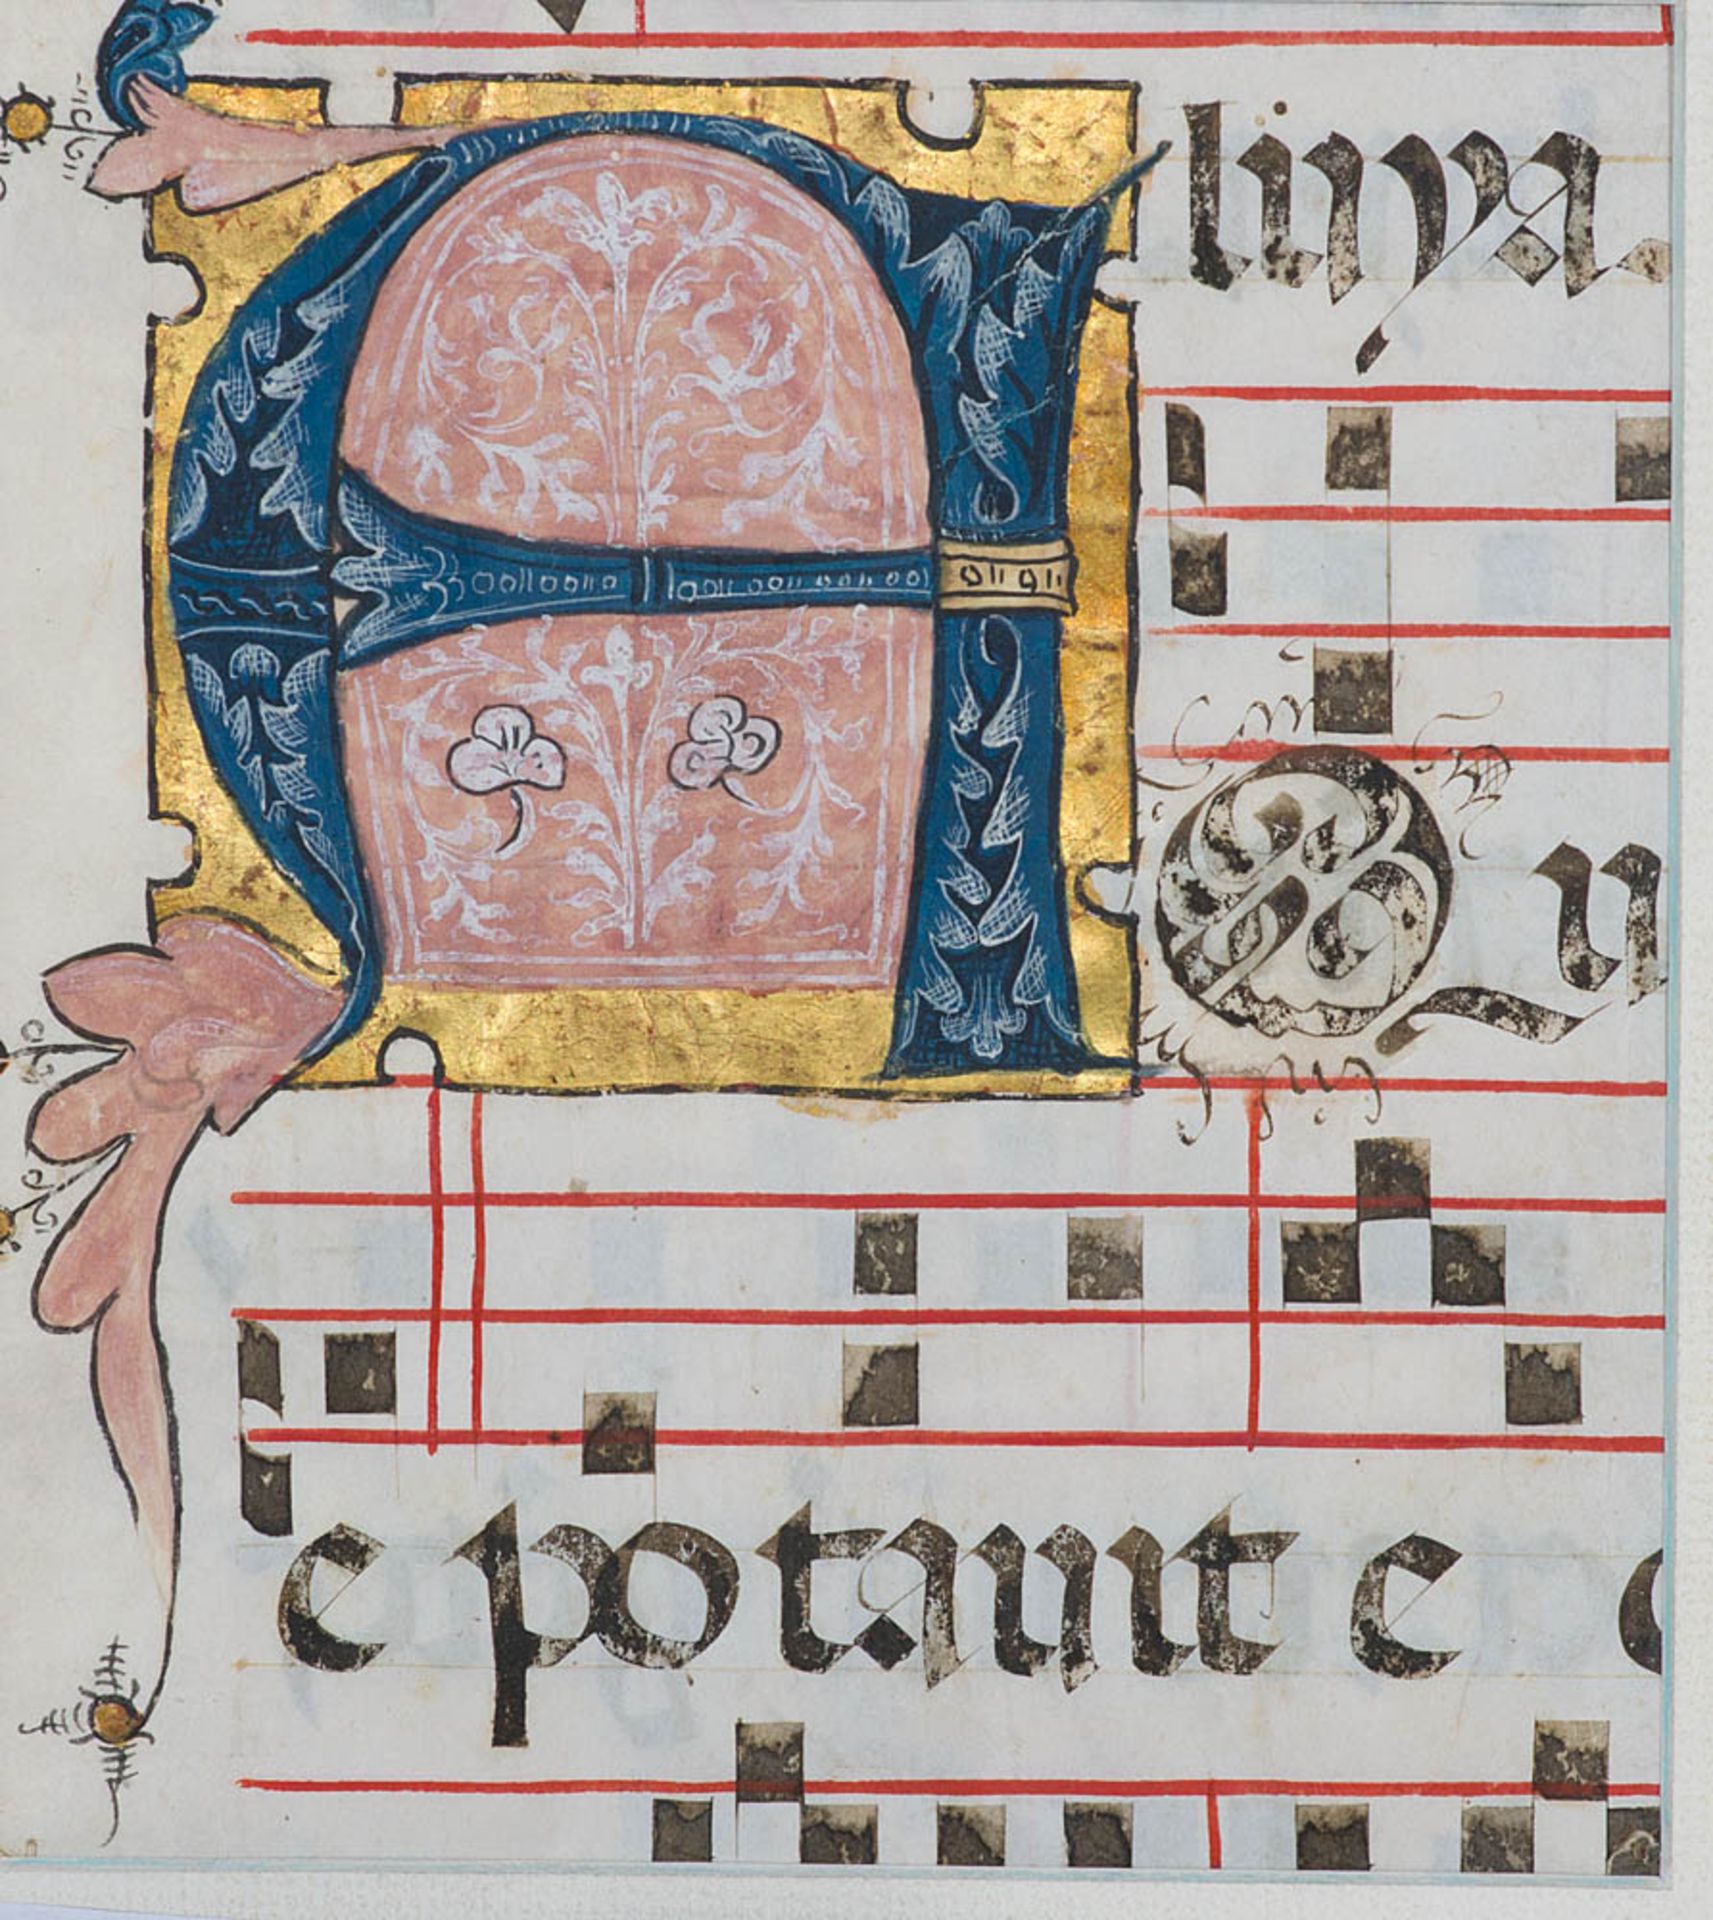 Aluya
Qu
e potauit e